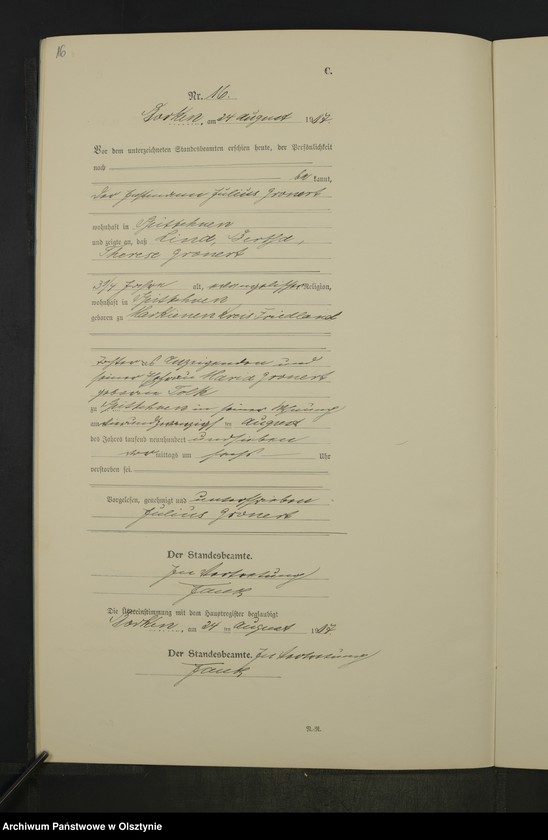 16
C.
Nr. 16.
Dorken, am 24 August 1907.
Vor dem unterzeichneten Standesbeamten erschien heute, der Persönlichkeit
nach
be kannt,
der Julius Gronert
wohnhaft in
und zeigte an, daß Lina, Bertha,
Therese Gronert
3 1/4 Jahre alt, evangelischer Religion,
wohnhaft in
geboren zu Markienen Kreis Friedland
Tochter des Anzeigenden und
seiner Ehefrau Maria Gronert
geborene Folk
zu in seiner Wohnung
am vierundzwanzigsten August
des Jahres tausend neunhundert und sieben
vor mittags um Uhr
verstorben sei.
Vorgelesen, genehmigt und unterschrieben
Julius Gronert
Der Standesbeamte.
In Vertretung
Die Übereinstimmung mit dem Hauptregister beglaubigt
Dorken, am 24 ten August 1907.
Der Standesbeamte. In Vertretung
R.-R.
Archiwum Państwowe w Olsztynie